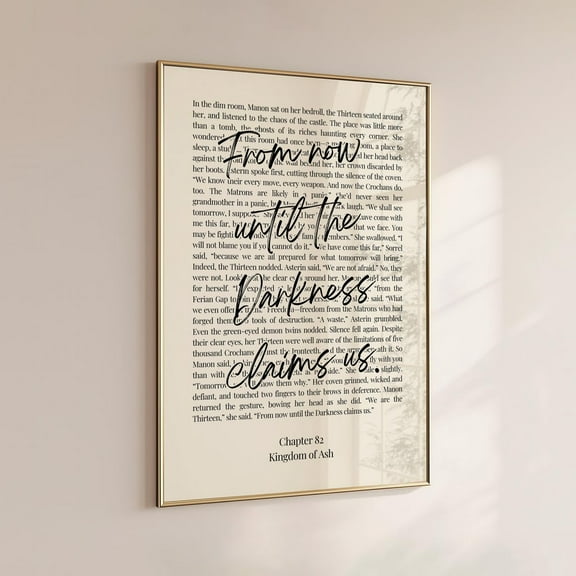 In the dim room, Manon sat on her bedroll, the Thirteen seated around
her, and listened to the chaos of the castle. The place was little more
than a tomb, the ghosts of its riches haunting every corner. She
wondered this room had once been room, a place to
sleep, a her head back
against the was behind her, her crown discarded by
her boots. Asterin spoke first, cutting through the silence of the coven.
"We know their every move, every weapon. And now the Crochans do,
too. The Matrons are likely in a panic." She'd never seen her
grandmother in a panic, laugh. "We shall see
tomorrow, I her have come with
me this far, that we face. You
may be members." She swallowed. "I
will not blame you if you cannot do it." We have come this far," Sorrel
said, "because we are all prepared for what tomorrow will bring."
Indeed, the Thirteen nodded. Asterin said, "We are not afraid." No, they
were not. the clear around her, Manon see that
for herself. "from the
Ferian Gap to join said. "What
we even offer Freedom—freedom from the Matrons who had
forged them tools of destruction. "A waste," Asterin grumbled.
Even the green-eyed demon twins nodded. Silence fell again. Despite
their clear eyes, her Thirteen were well aware of the limitations of five
thousand Crochans the Ironteeth it. So
Manon said, with you
than with side." She slightly.
"Tomorrow, show them why." Her coven grinned, wicked and
defiant, and touched two fingers to their brows in deference. Manon
returned the gesture, bowing her head as she did. "We are the
Thirteen," she said. "From now until the Darkness claims us."
From now
until the
Darkness
claims us.
Chapter 82
Kingdom of Ash